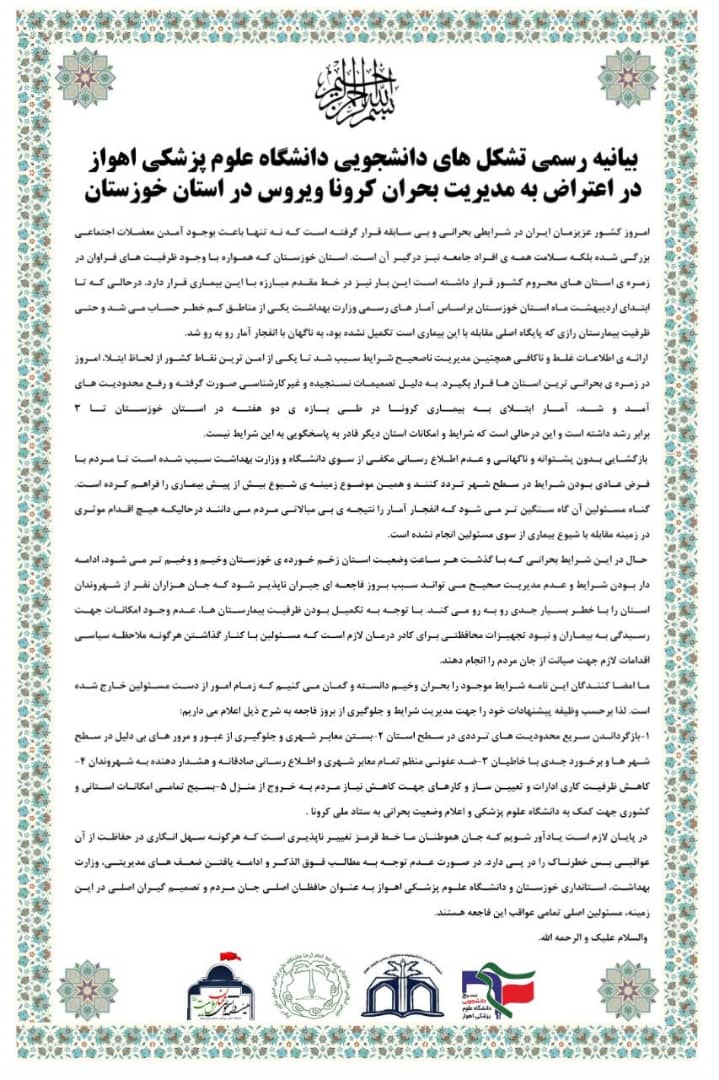 بسم الله الرحمن الرحیم
بیانیه رسمی تشکل های دانشجویی دانشگاه علوم پزشکی اهواز
در اعتراض به مدیریت بحران کرونا ویروس در استان خوزستان
امروز کشور عزیزمان ایران در شرایطی بحرانی و بی سابقه قرار گرفته است که نه تنها باعث بوجود آمدن معضلات اجتماعی
بزرگی شده بلکه سلامت همه ی افراد جامعه نیز درگیر آن است. استان خوزستان که همواره با وجود ظرفیت های فراوان در
زمره ی استان های محروم کشور قرار داشته است این بار نیز در خط مقدم مبارزه با این بیماری قرار دارد. درحالی که تا
ابتدای اردیبهشت ماه استان خوزستان براساس آمار های رسمی وزارت بهداشت یکی از مناطق کم خطر حساب می شد و حتی
ظرفیت بیمارستان رازی که پایگاه اصلی مقابله با این بیماری است تکمیل نشده بود، به ناگهان با انفجار آمار رو به رو شد.
ارائه ی اطلاعات غلط و ناکافی همچنین مدیریت ناصحیح شرایط سبب شد تا یکی از امن ترین نقاط کشور از لحاظ ابتلا، امروز
در زمره ی بحرانی ترین استان ها قرار بگیرد. به دلیل تصمیمات نسنجیده و غیرکارشناسی صورت گرفته و رفع محدودیت های
آمد و شد، آمار ابتلای به بیماری کرونا در طی بازه ی دو هفته در استان خوزستان تا ۳
برابر رشد داشته است و این درحالی است که شرایط و امکانات استان دیگر قادر به پاسخگویی به این شرایط نیست.
بازگشایی بدون پشتوانه و ناگهانی و عدم اطلاع رسانی مکفی از سوی دانشگاه و وزارت بهداشت سبب شده است تا مردم با
فرض عادی بودن شرایط در سطح شهر تردد کنند و همین موضوع زمینه ی شیوع بیش از پیش بیماری را فراهم کرده است.
گناه مسئولین آن گاه سنگین تر می شود که انفجار آمار را نتیجه ی بی مبالاتی مردم می دانند درحالیکه هیچ اقدام موثری
در زمینه مقابله با شیوع بیماری از سوی مسئولین انجام نشده است.
حال در این شرایط بحرانی که با گذشت هر ساعت وضعیت استان زخم خورده ی خوزستان وخیم و وخیم تر می شود، ادامه
دار بودن شرایط و عدم مدیریت صحیح می تواند سبب بروز فاجعه ای جبران ناپذیر شود که جان هزاران نفر از شهروندان
استان را با خطر بسیار جدی رو به رو می کند. با توجه به تکمیل بودن ظرفیت بیمارستان ها، عدم وجود امکانات جهت
رسیدگی به بیماران و نبود تجهیزات محافظتی برای کادر درمان لازم است که مسئولین با کنار گذاشتن هرگونه ملاحظه سیاسی
اقدامات لازم جهت صیانت از جان مردم را انجام دهند.
ما امضا کنندگان این نامه شرایط موجود را بحران وخیم دانسته و گمان می کنیم که زمام امور از دست مسئولین خارج شده
است. لذا برحسب وظیفه پیشنهادات خود را جهت مدیریت شرایط و جلوگیری از بروز فاجعه به شرح ذیل اعلام می داریم:
۱-بازگرداندن سریع محدودیت های ترددی در سطح استان ۲-بستن معابر شهری و جلوگیری از عبور و مرور های بی دلیل در سطح
شهر ها و برخورد جدی با خاطیان ۳-ضد عفونی منظم تمام معابر شهری و اطلاع رسانی صادقانه و هشدار دهنده به شهروندان ۴-
کاهش ظرفیت کاری ادارات و تعیین ساز و کارهای جهت کاهش نیاز مردم به خروج از منزل ۵-بسیج تمامی امکانات استانی و
کشوری جهت کمک به دانشگاه علوم پزشکی و اعلام وضعیت بحرانی به ستاد ملی کرونا .
در پایان لازم است یادآور شویم که جان هموطنان ما خط قرمز تغییر ناپذیری است که هرگونه سهل انگاری در حفاظت از آن
عواقبی بس خطرناک را در پی دارد. در صورت عدم توجه به مطالب فوق الذکر و ادامه یافتن ضعف های مدیریتی، وزارت
بهداشت، استانداری خوزستان و دانشگاه علوم پزشکی اهواز به عنوان حافظان اصلی جان مردم و تصمیم گیران اصلی در این
زمینه، مسئولین اصلی تمامی عواقب این فاجعه هستند.
والسلام علیک و الرحمه الله.
بسیج
دانشجویی
دانشگاه علوم
پزشکی اهواز